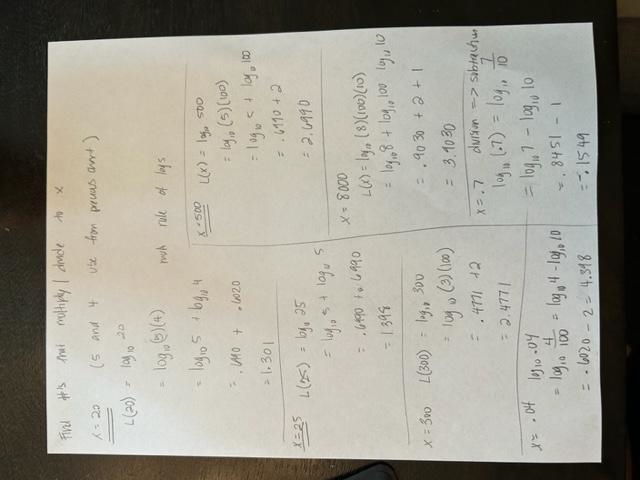 Find #'s that multiply/divide to x
x = 20 (5 and 4 use from previous chart)
L(20) = log10 20
= log10 (5)(4) mult rule of logs
= log10 5 + log10 4
= .690 + .6020
= 1.301
x=25 L(25) = log10 25
= log10 5 + log10 5
= .6990 + .6990
= 1.398
x = 300 L(300) = log10 300
= log10 (3)(100)
= .4771 + 2
= 2.4771
x = .04 log10 .04
= log10 4/100 = log10 4 - log10 10
= .6020 - 2 = 4.398
x=500 L(x) = log10 500
= log10 (5)(100)
= log10 5 + log10 100
= .6990 + 2
= 2.6990
x = 8000
L(x) = log10 (8)(100)(10)
= log10 8 + log10 100 log10 10
= .9030 + 2 + 1
= 3.9030
x = .7 division => subtraction
log10 (.7) = log10 7/10
= log10 7 - log10 10
= .8451 - 1
= -.1549